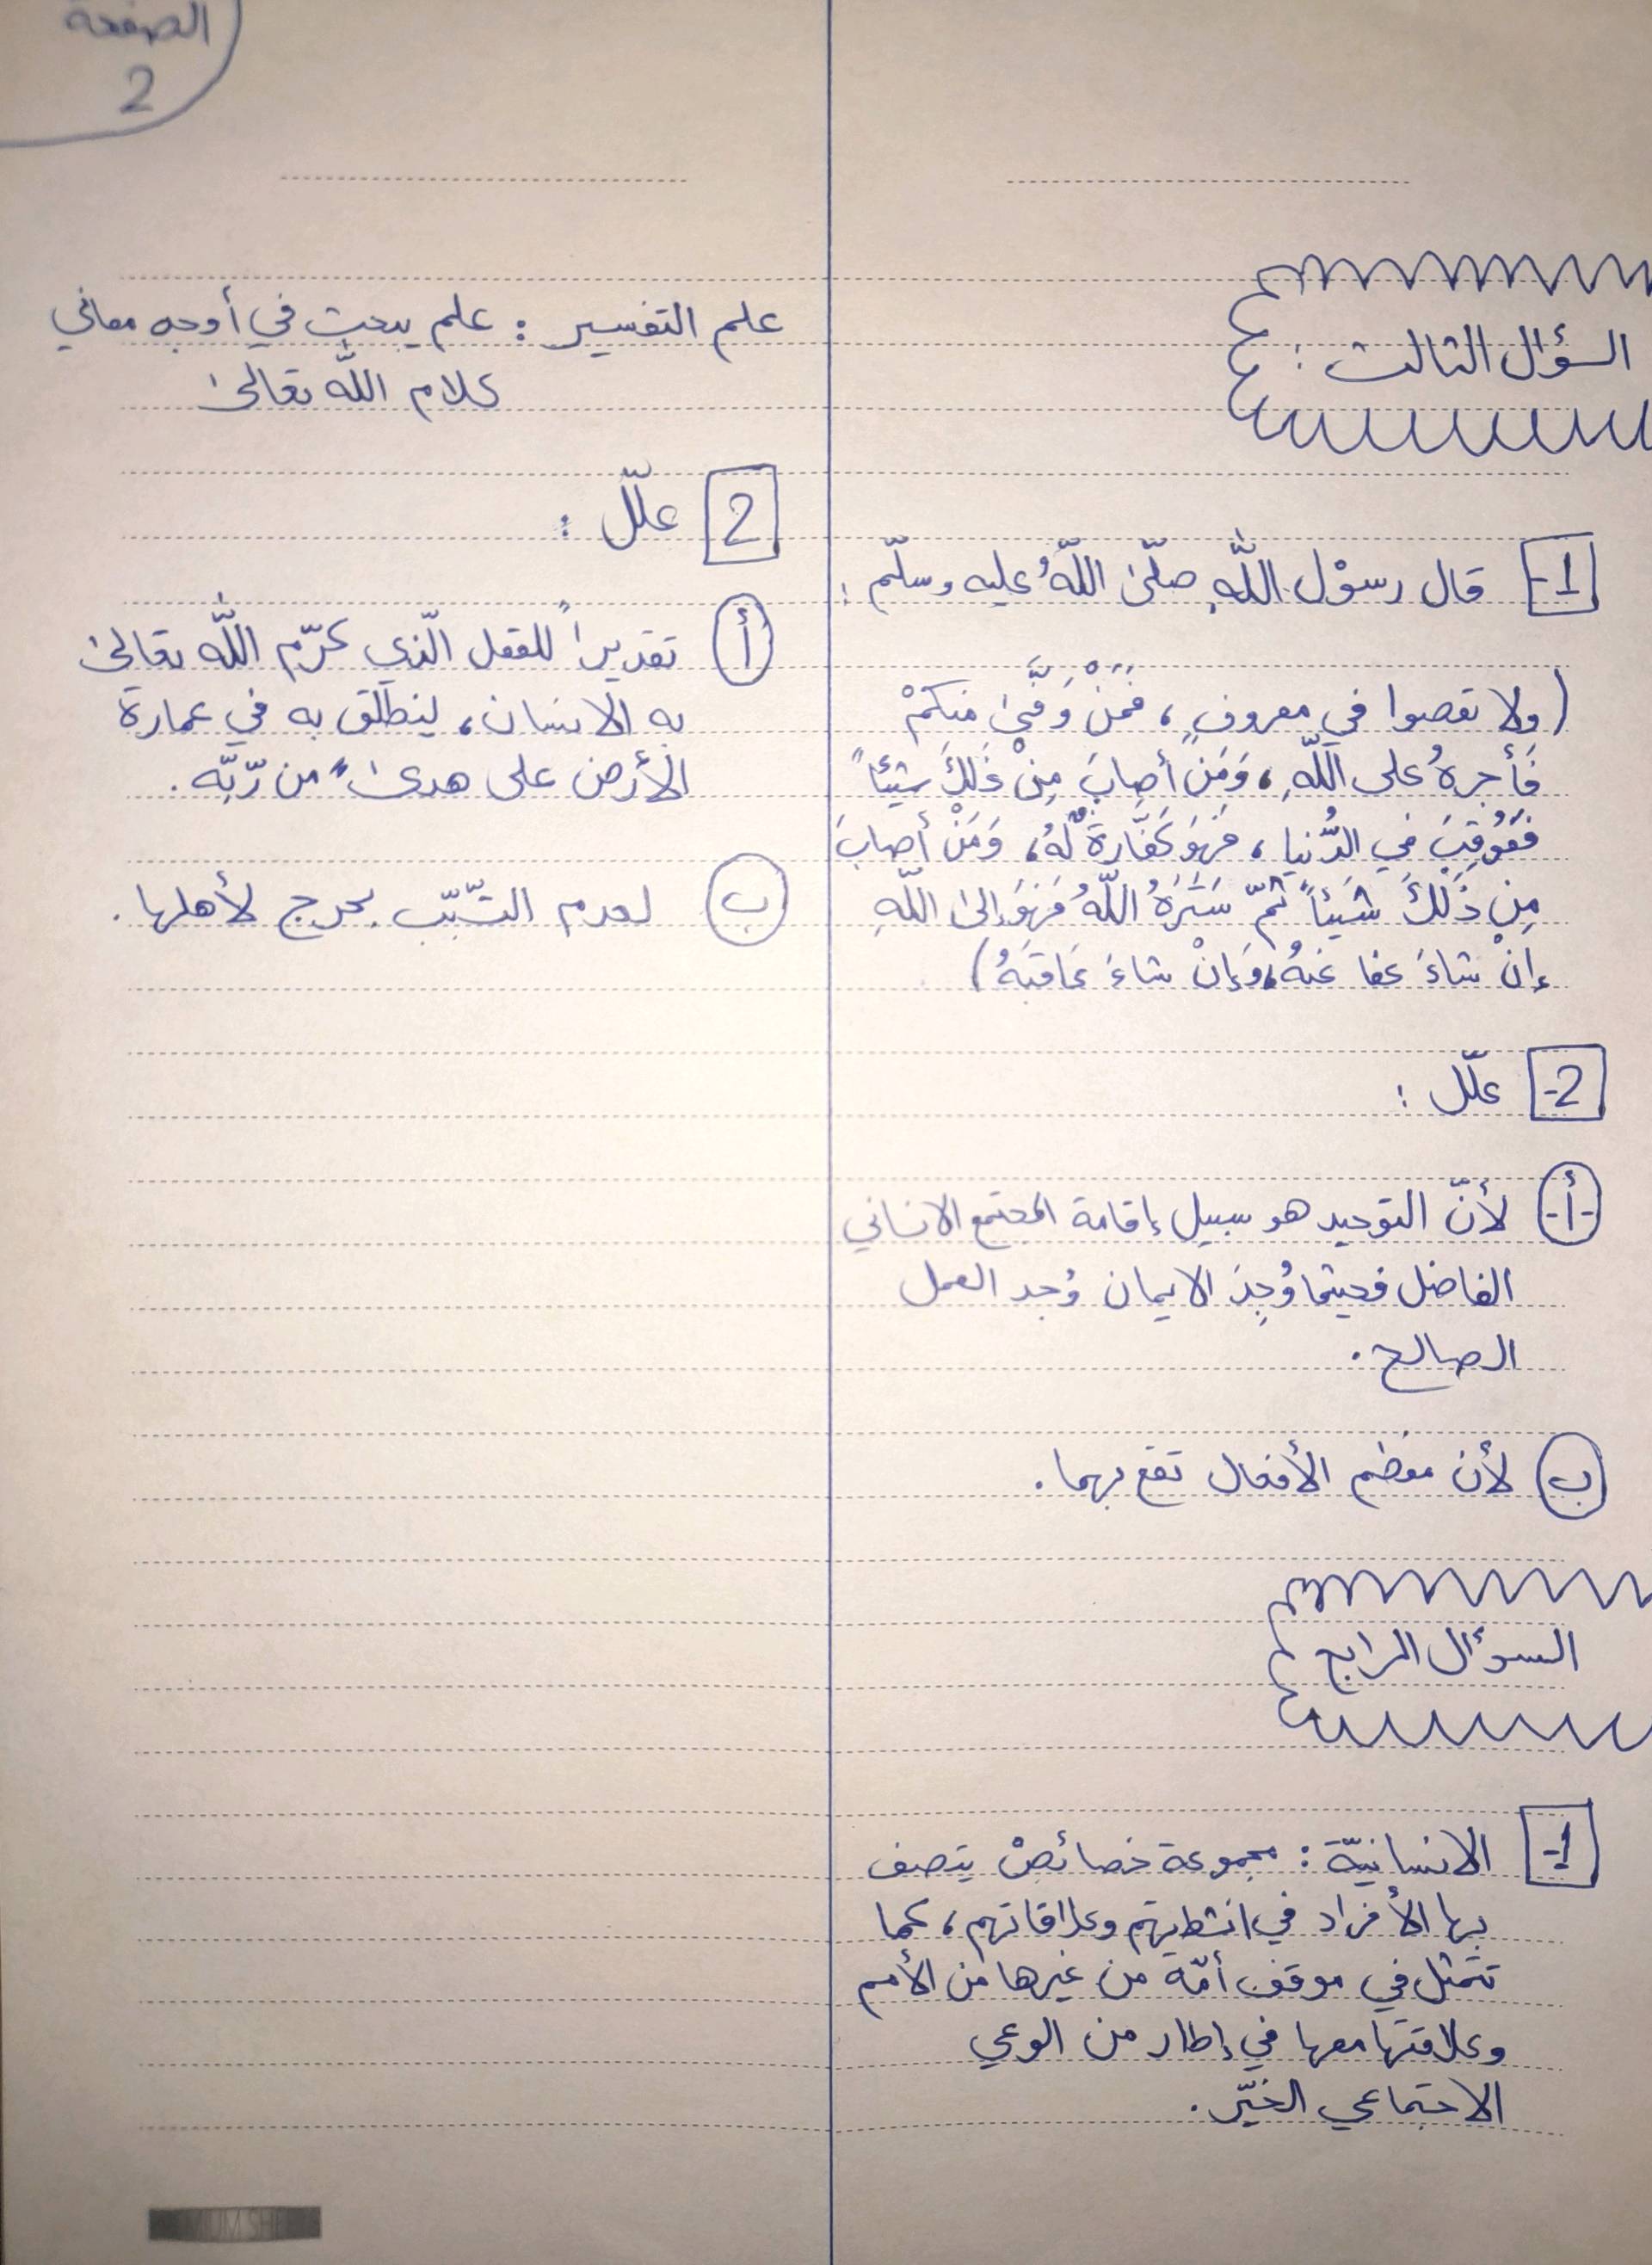 الصفحة
2
السؤال الثالث :
1- قال رسوْل اللَّهِ صلّى اللّهُ عليه وسلّم :
(ولا تعصوا في معروفٍ، فَمَنْ وَفَّىٰ منكمْ
فَأجرهُ على اللَّهِ، وَمَنْ أصابَ مِنْ ذَلِكَ شيئاً
فَعُوْقِبَ في الدُّنيا، فَهَوَ كَفَّارةٌ لَهُ، وَمَنْ أصابَ
مِنْ ذَلِكَ شَيئاً ثُمَّ سَتَرَهُ اللَّهُ فَهَوَ إلىٰ اللَّهِ
إنْ شاءَ عفا عَنهُ، وَإنْ شاءَ عَاقَبَهُ)
2- علّل :
-أ- لأنّ التوحيد هو سبيل إقامة المجتمع الانساني
الفاضل فحيثما وُجِدَ الايمان وُجد العمل
الصالح.
ب لأن معظم الأفعال تقع بهما.
السؤال الرابع
1- الانسانيّة : مجموعة خصائصْ يتصف
بها الأفراد في انشطتهم وعلاقاتهم، كما
تتمثل في موقف أمّة من غيرها من الأمم
وعلاقتها معها في إطار من الوعي
الاجتماعي الخيّر.
علم التفسير : علم يبحث في أوجه معاني
كلام اللَّه تعالىٰ
2 علّل :
أ تقديراً للعقل الّذي كرّم اللَّه تعالىٰ
به الانسان، لينطلق به في عمارة
الأرض على هدىً من رّبّه.
ب لعدم التّسبّب بحرج لأهلها.